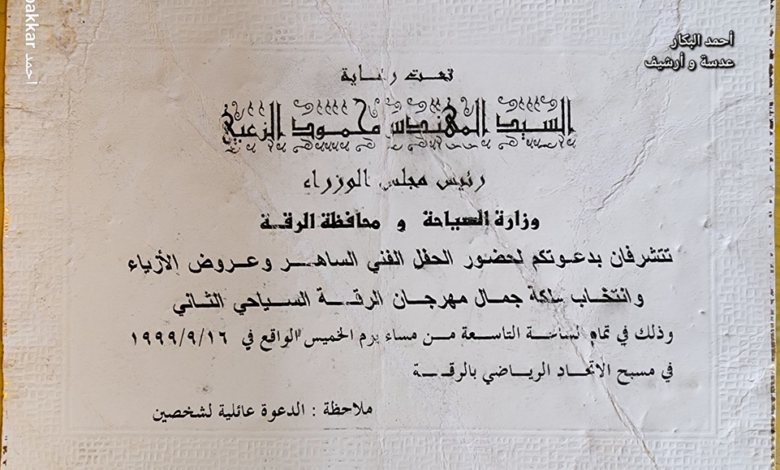 أحمد البكار
عدسة و أرشيف
أحمد bakkar
تحت رعاية
السيد المهندس محمود الزعبي
رئيس مجلس الوزراء
وزارة السياحة و محافظة الرقة
تتشرفان بدعوتكم لحضور الحفل الفني الساهر وعروض الأزياء
وانتخاب ملكة جمال مهرجان الرقة السياحي الثاني
وذلك في تمام الساعة التاسعة من مساء يوم الخميس الواقع في ١٩٩٩/٩/١٦
في مسبح الاتحاد الرياضي بالرقة
ملاحظة : الدعوة عائلية لشخصين